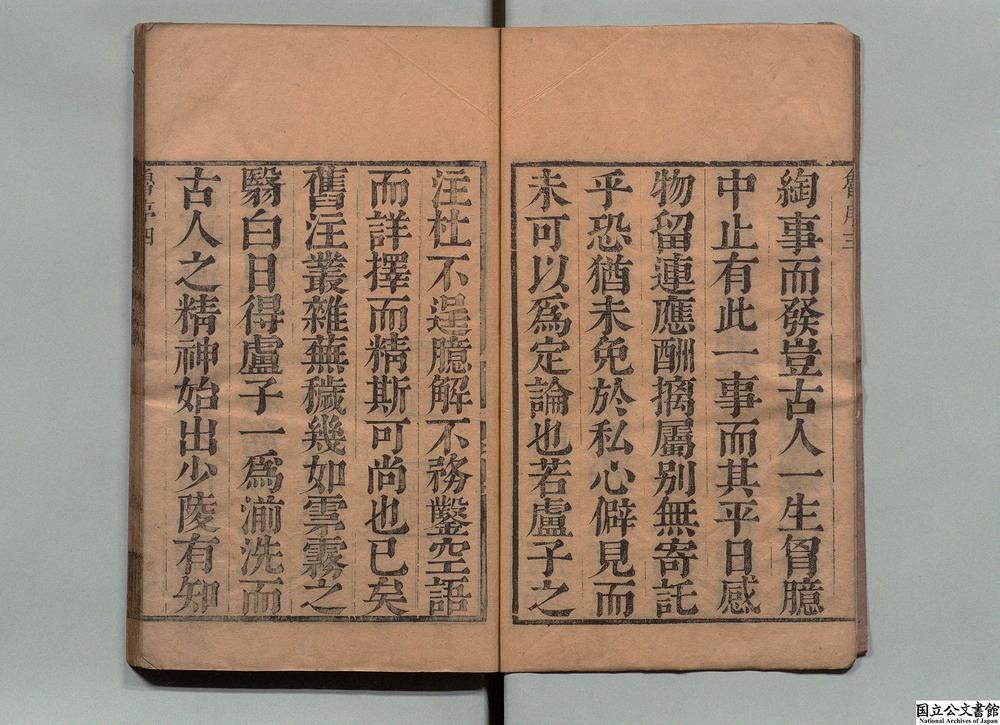 綯事而發豈古人一生胷臆
中止有此一事而其平日感
物留連應酬摛屬别無寄託
乎恐猶未免於私心僻見而
未可以爲定論也若盧子之
注杜不逞臆解不務鑿空語
而詳擇而精斯可尚也已矣
舊注叢雜蕪穢幾如雲霧之
翳白日得盧子一爲湔洗而
古人之精神始出少陵有知
国立公文書館
National Archives of Japan